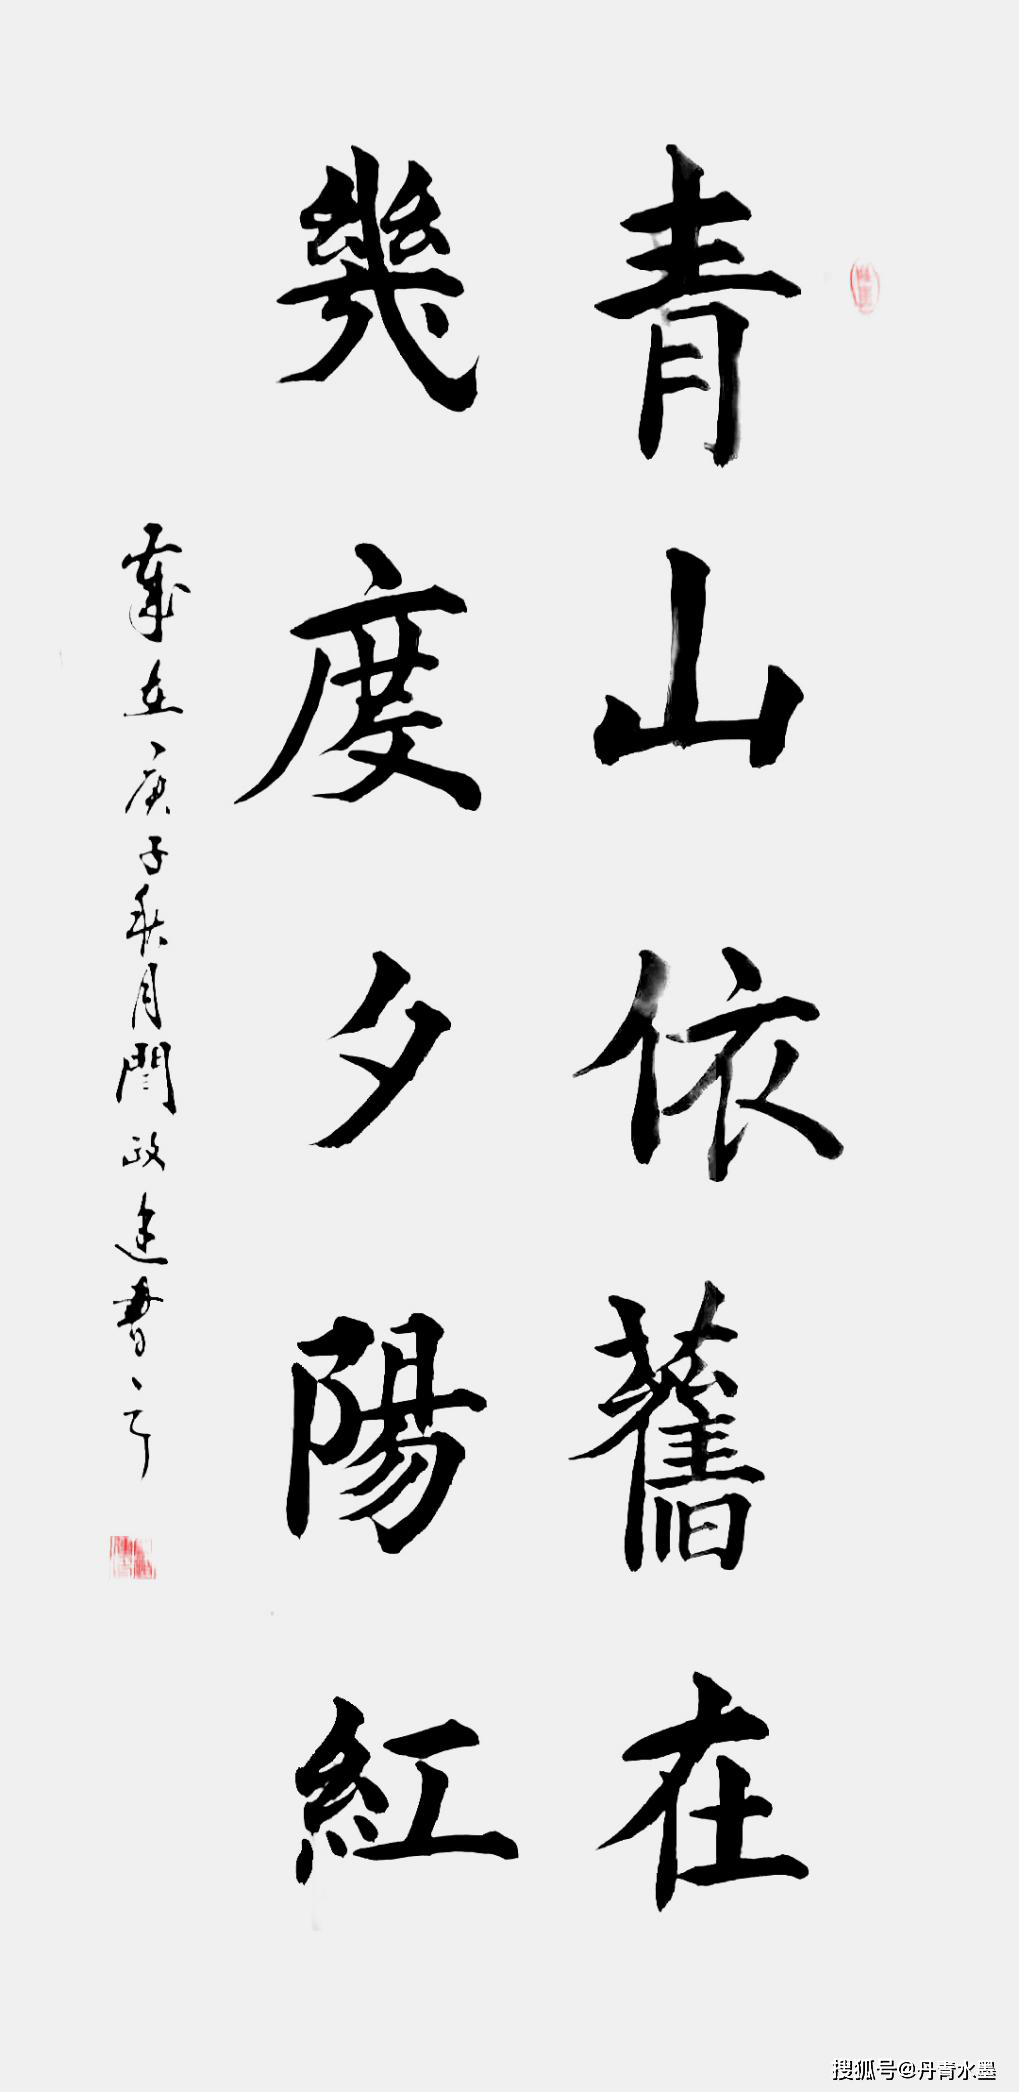 青山依舊在
幾度夕陽紅
歲在庚子秋月閆政建書
搜狐号@丹青水墨